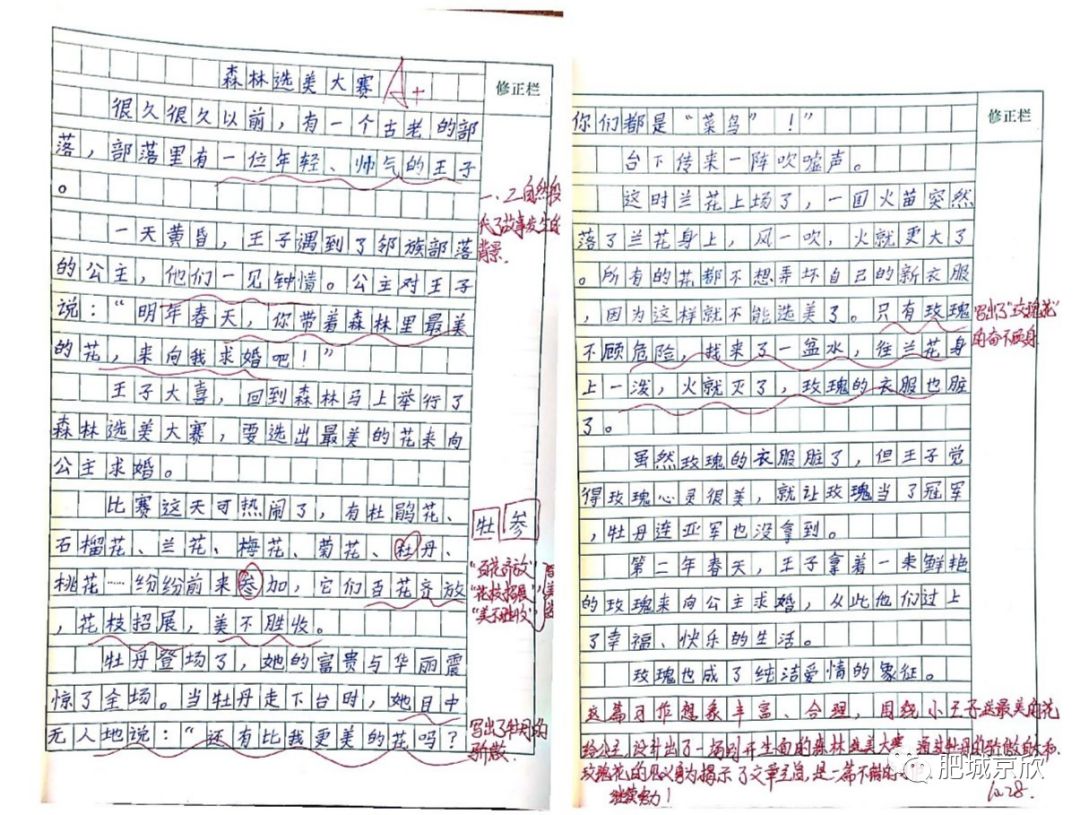 森林选美大赛 A+
修正栏
很久很久以前，有一个古老的部
落，部落里有一位年轻、帅气的王子
。
一、二自然段
代了故事发生的
背景.
一天黄昏，王子遇到了邻族部落
的公主，他们一见钟情。公主对王子
说：“明年春天，你带着森林里最美
的花，来向我求婚吧！”
王子大喜，回到森林马上举行了
森林选美大赛，要选出最美的花来向
公主求婚。
比赛这天可热闹了，有杜鹃花、
石榴花、兰花、梅花、菊花、牡丹、
桃花……纷纷前来参加，它们百花齐放
，花枝招展，美不胜收。
牡参
“百花齐放”
“花枝招展”
“美不胜收”
牡丹登场了，她的富贵与华丽震
惊了全场。当牡丹走下台时，她目中
无人地说：“还有比我更美的花吗？
写出了牡丹的
骄傲.
修正栏
你们都是“菜鸟”！”
台下传来一阵吹嘘声。
这时兰花上场了，一团火苗突然
落了兰花身上，风一吹，火就更大了
。所有的花都不想弄坏自己的新衣服
，因为这样就不能选美了。只有玫瑰
不顾危险，找来了一盆水，往兰花身
上一泼，火就灭了，玫瑰的衣服也脏
了。
写出了“玫瑰花”
的奋不顾身.
虽然玫瑰的衣服脏了，但王子觉
得玫瑰心灵很美，就让玫瑰当了冠军
，牡丹连亚军也没拿到。
第二年春天，王子拿着一束鲜艳
的玫瑰来向公主求婚，从此他们过上
了幸福、快乐的生活。
玫瑰也成了纯洁爱情的象征。
这篇习作想象丰富、合理，围绕小王子送最美的花
给公主，设计出了一场别开生面的森林选美大赛，通过牡丹的骄傲
玫瑰花的见义勇为揭示了文章主旨，是一篇不错的
继续努力！
10.28.
肥城京欣